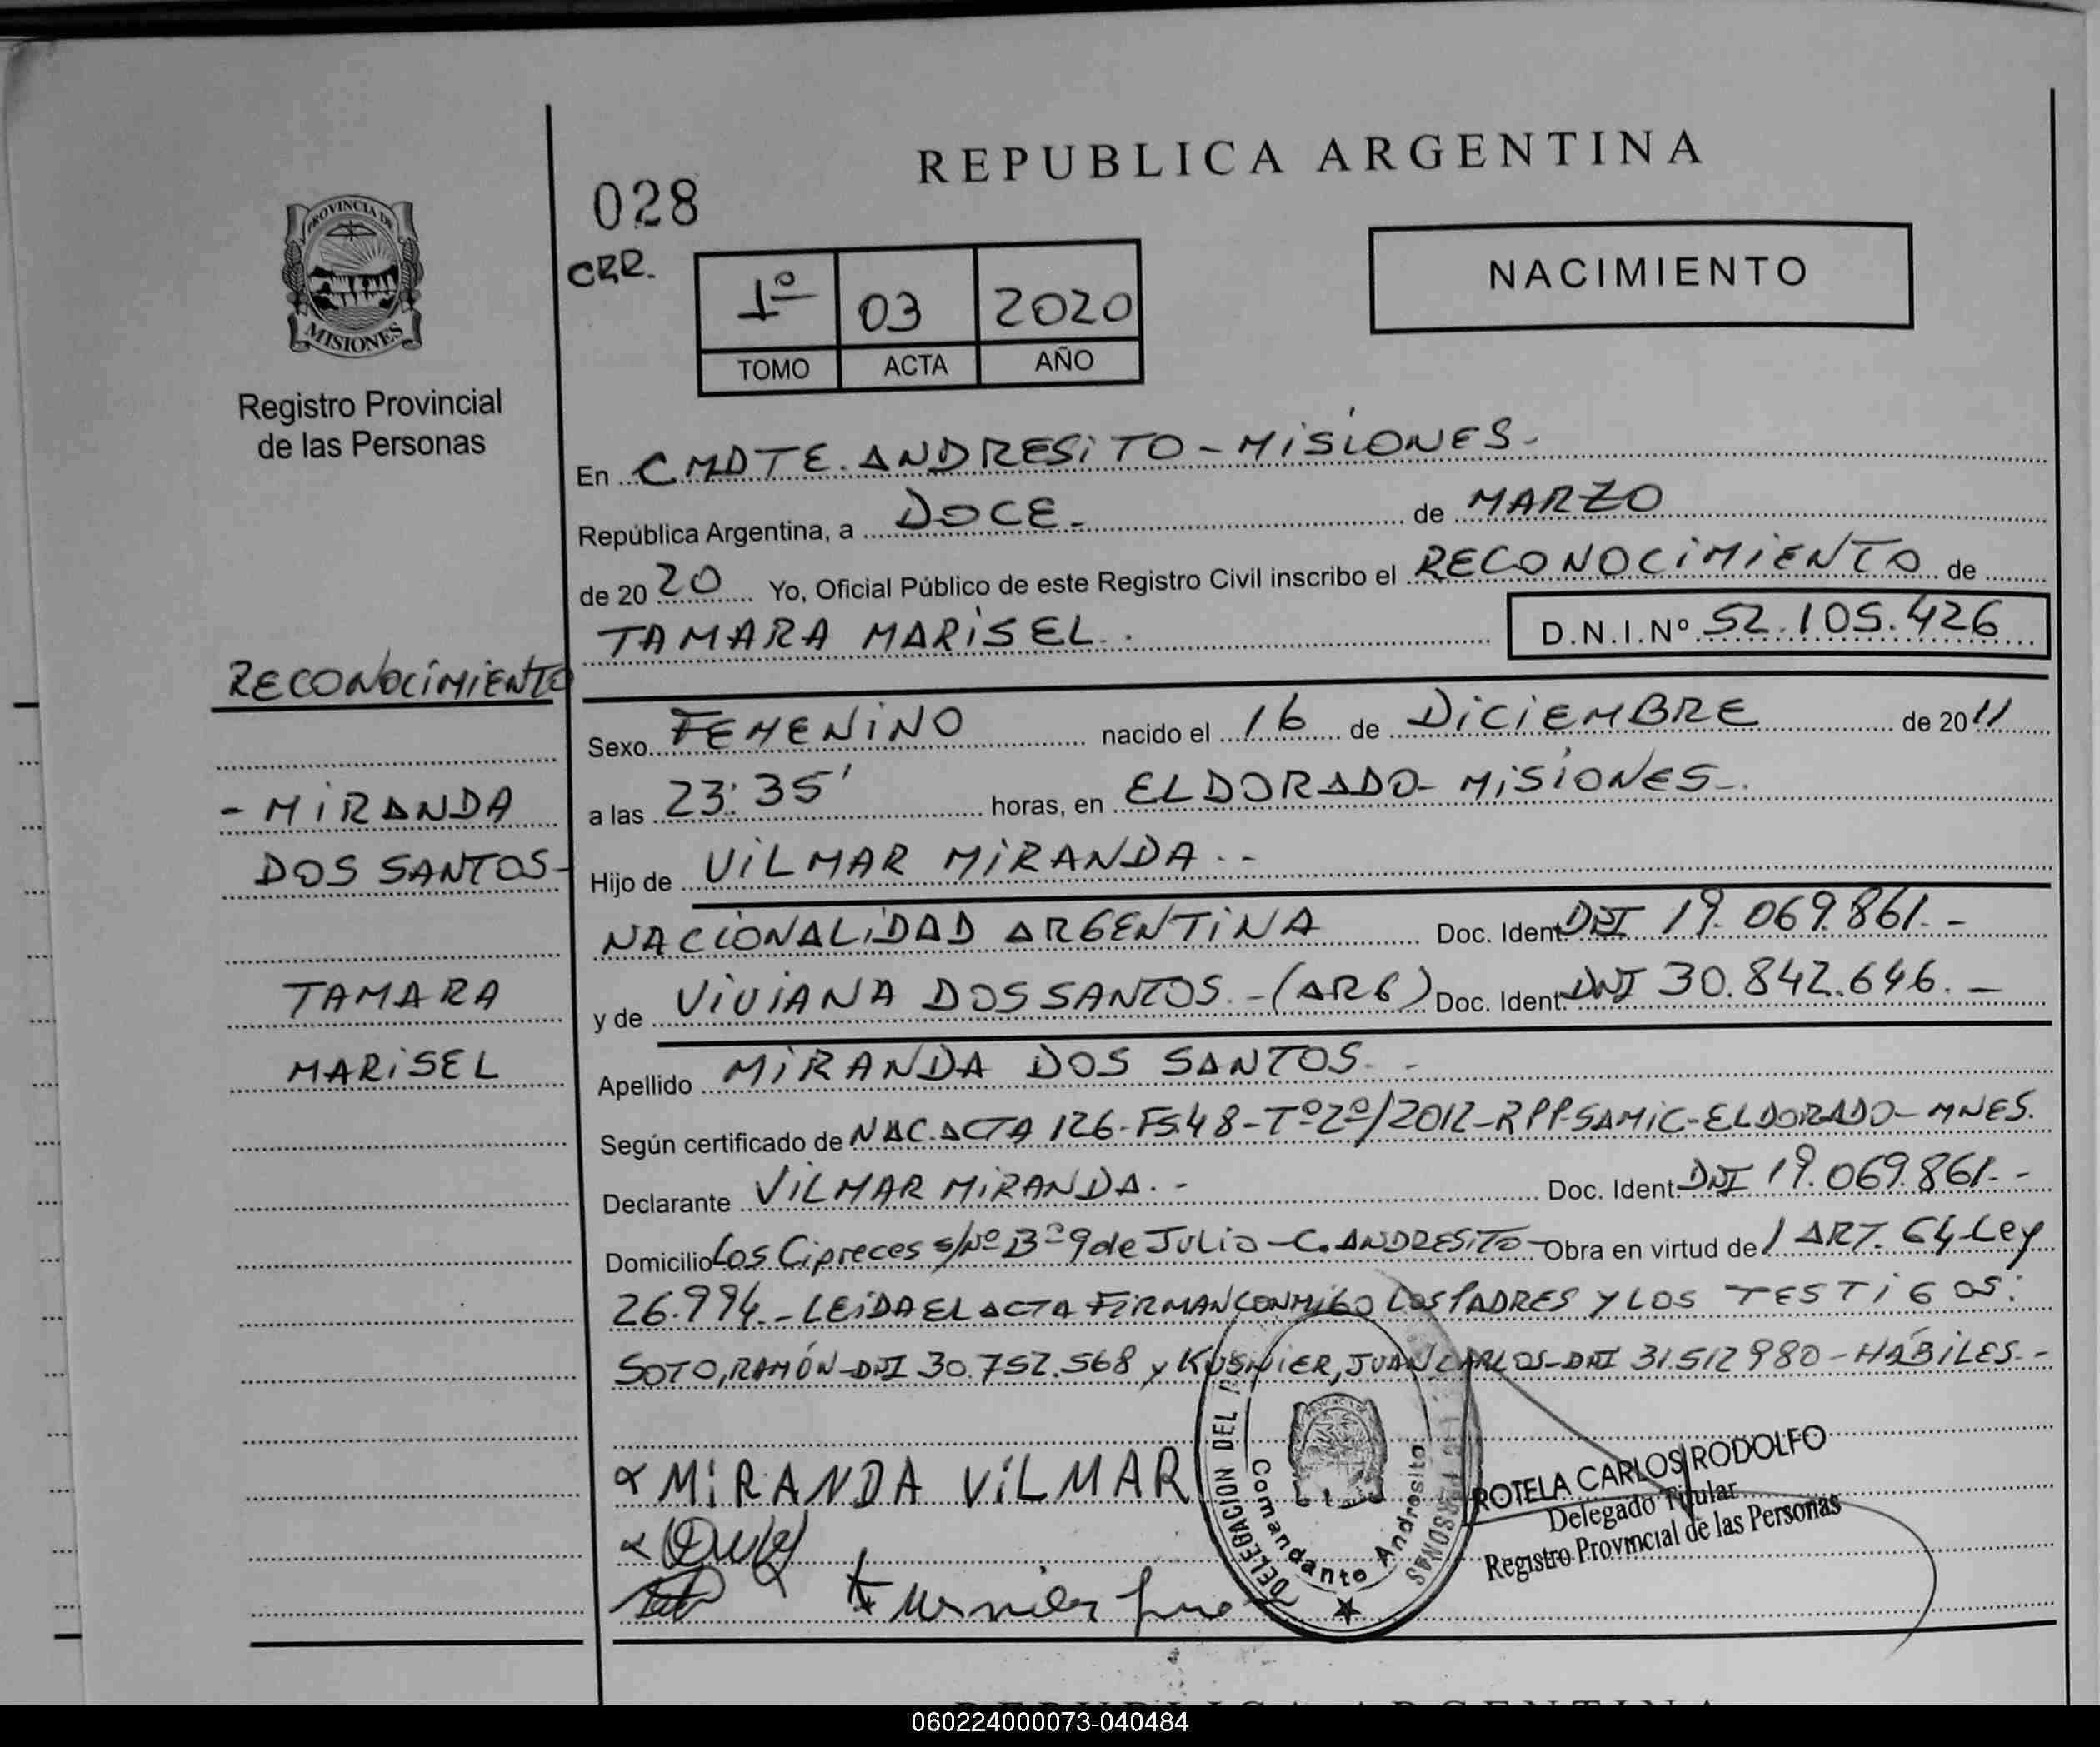 REPUBLICA ARGENTINA
028
CRR.
NACIMIENTO
1º 03 2020
TOMO ACTA AÑO
PROVINCIA DE
MISIONES
Registro Provincial
de las Personas
En CMDTE. ANDRESiTO - MiSiONES -
República Argentina, a DOCE - de MARZO
de 2020 Yo, Oficial Público de este Registro Civil inscribo el RECONOCiMiENTO de
TAMARA MARiSEL. D.N.I.Nº 52.105.426
RECONOCiMiENTO
- MiRANDA
DOS SANTOS -
TAMARA
MARiSEL
Sexo FEMENiNO nacido el 16 de DiCiEMBRE de 2011
a las 23:35' horas, en ELDORADO - MiSiONES -
Hijo de ViLMAR MiRANDA. -
NACiONALiDAD ARGENTiNA Doc. Ident. DNI 19.069.861. -
y de ViViANA DOS SANTOS. - (ARG) Doc. Ident. DNI 30.842.646. -
Apellido MiRANDA DOS SANTOS. -
Según certificado de NAC. ACTA 126 - Fº 48 - Tº 2º/2012 - RPP SAMiC - ELDORADO - MNES.
Declarante ViLMAR MiRANDA. - Doc. Ident. DNI 19.069.861. -
Domicilio Los Cipreces s/Nº Bº 9 de JULio - C. ANDRESiTO - Obra en virtud de / ART. 64 - Ley
26.994. - LEiDA EL ACTA FiRMAN CONMiGO LOS PADRES Y LOS TESTiGOS:
SOTO, RAMÓN - DNI 30.752.568 y KUSNiER, JUAN CARLOS - DNI 31.512.980 - HÁBiLES. -
MiRANDA ViLMAR
DELEGACION DEL
PERSONAS
Comandante Andresito
ROTELA CARLOS RODOLFO
Delegado Titular
Registro Provincial de las Personas
REPUBLICA ARGENTINA
060224000073-040484